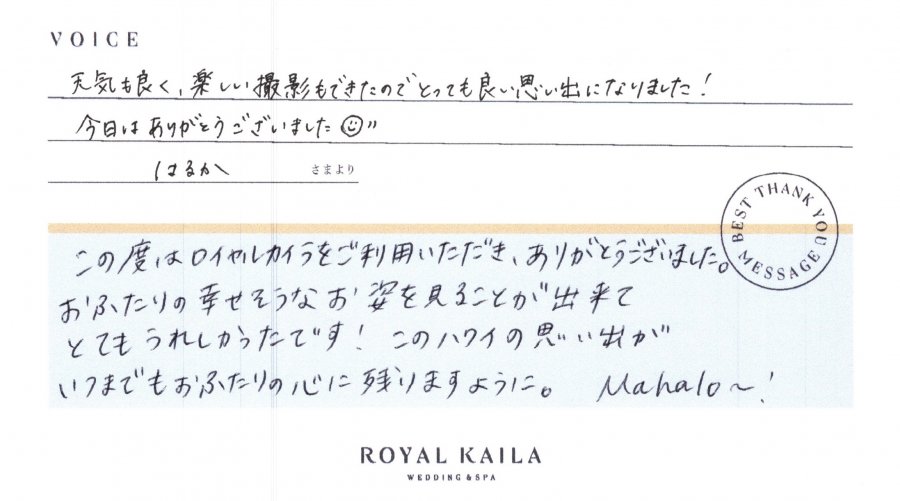 VOICE
天気も良く、楽しい撮影もできたのでとっても良い思い出になりました!
今日はありがとうございました☺"
はるか さまより
BEST THANK YOU MESSAGE
この度はロイヤルカイラをご利用いただき、ありがとうございました。
おふたりの幸せそうなお姿を見ることが出来て
とてもうれしかったです! このハワイの思い出が
いつまでもおふたりの心に残りますように。 Mahalo〜!
ROYAL KAILA
WEDDING & SPA